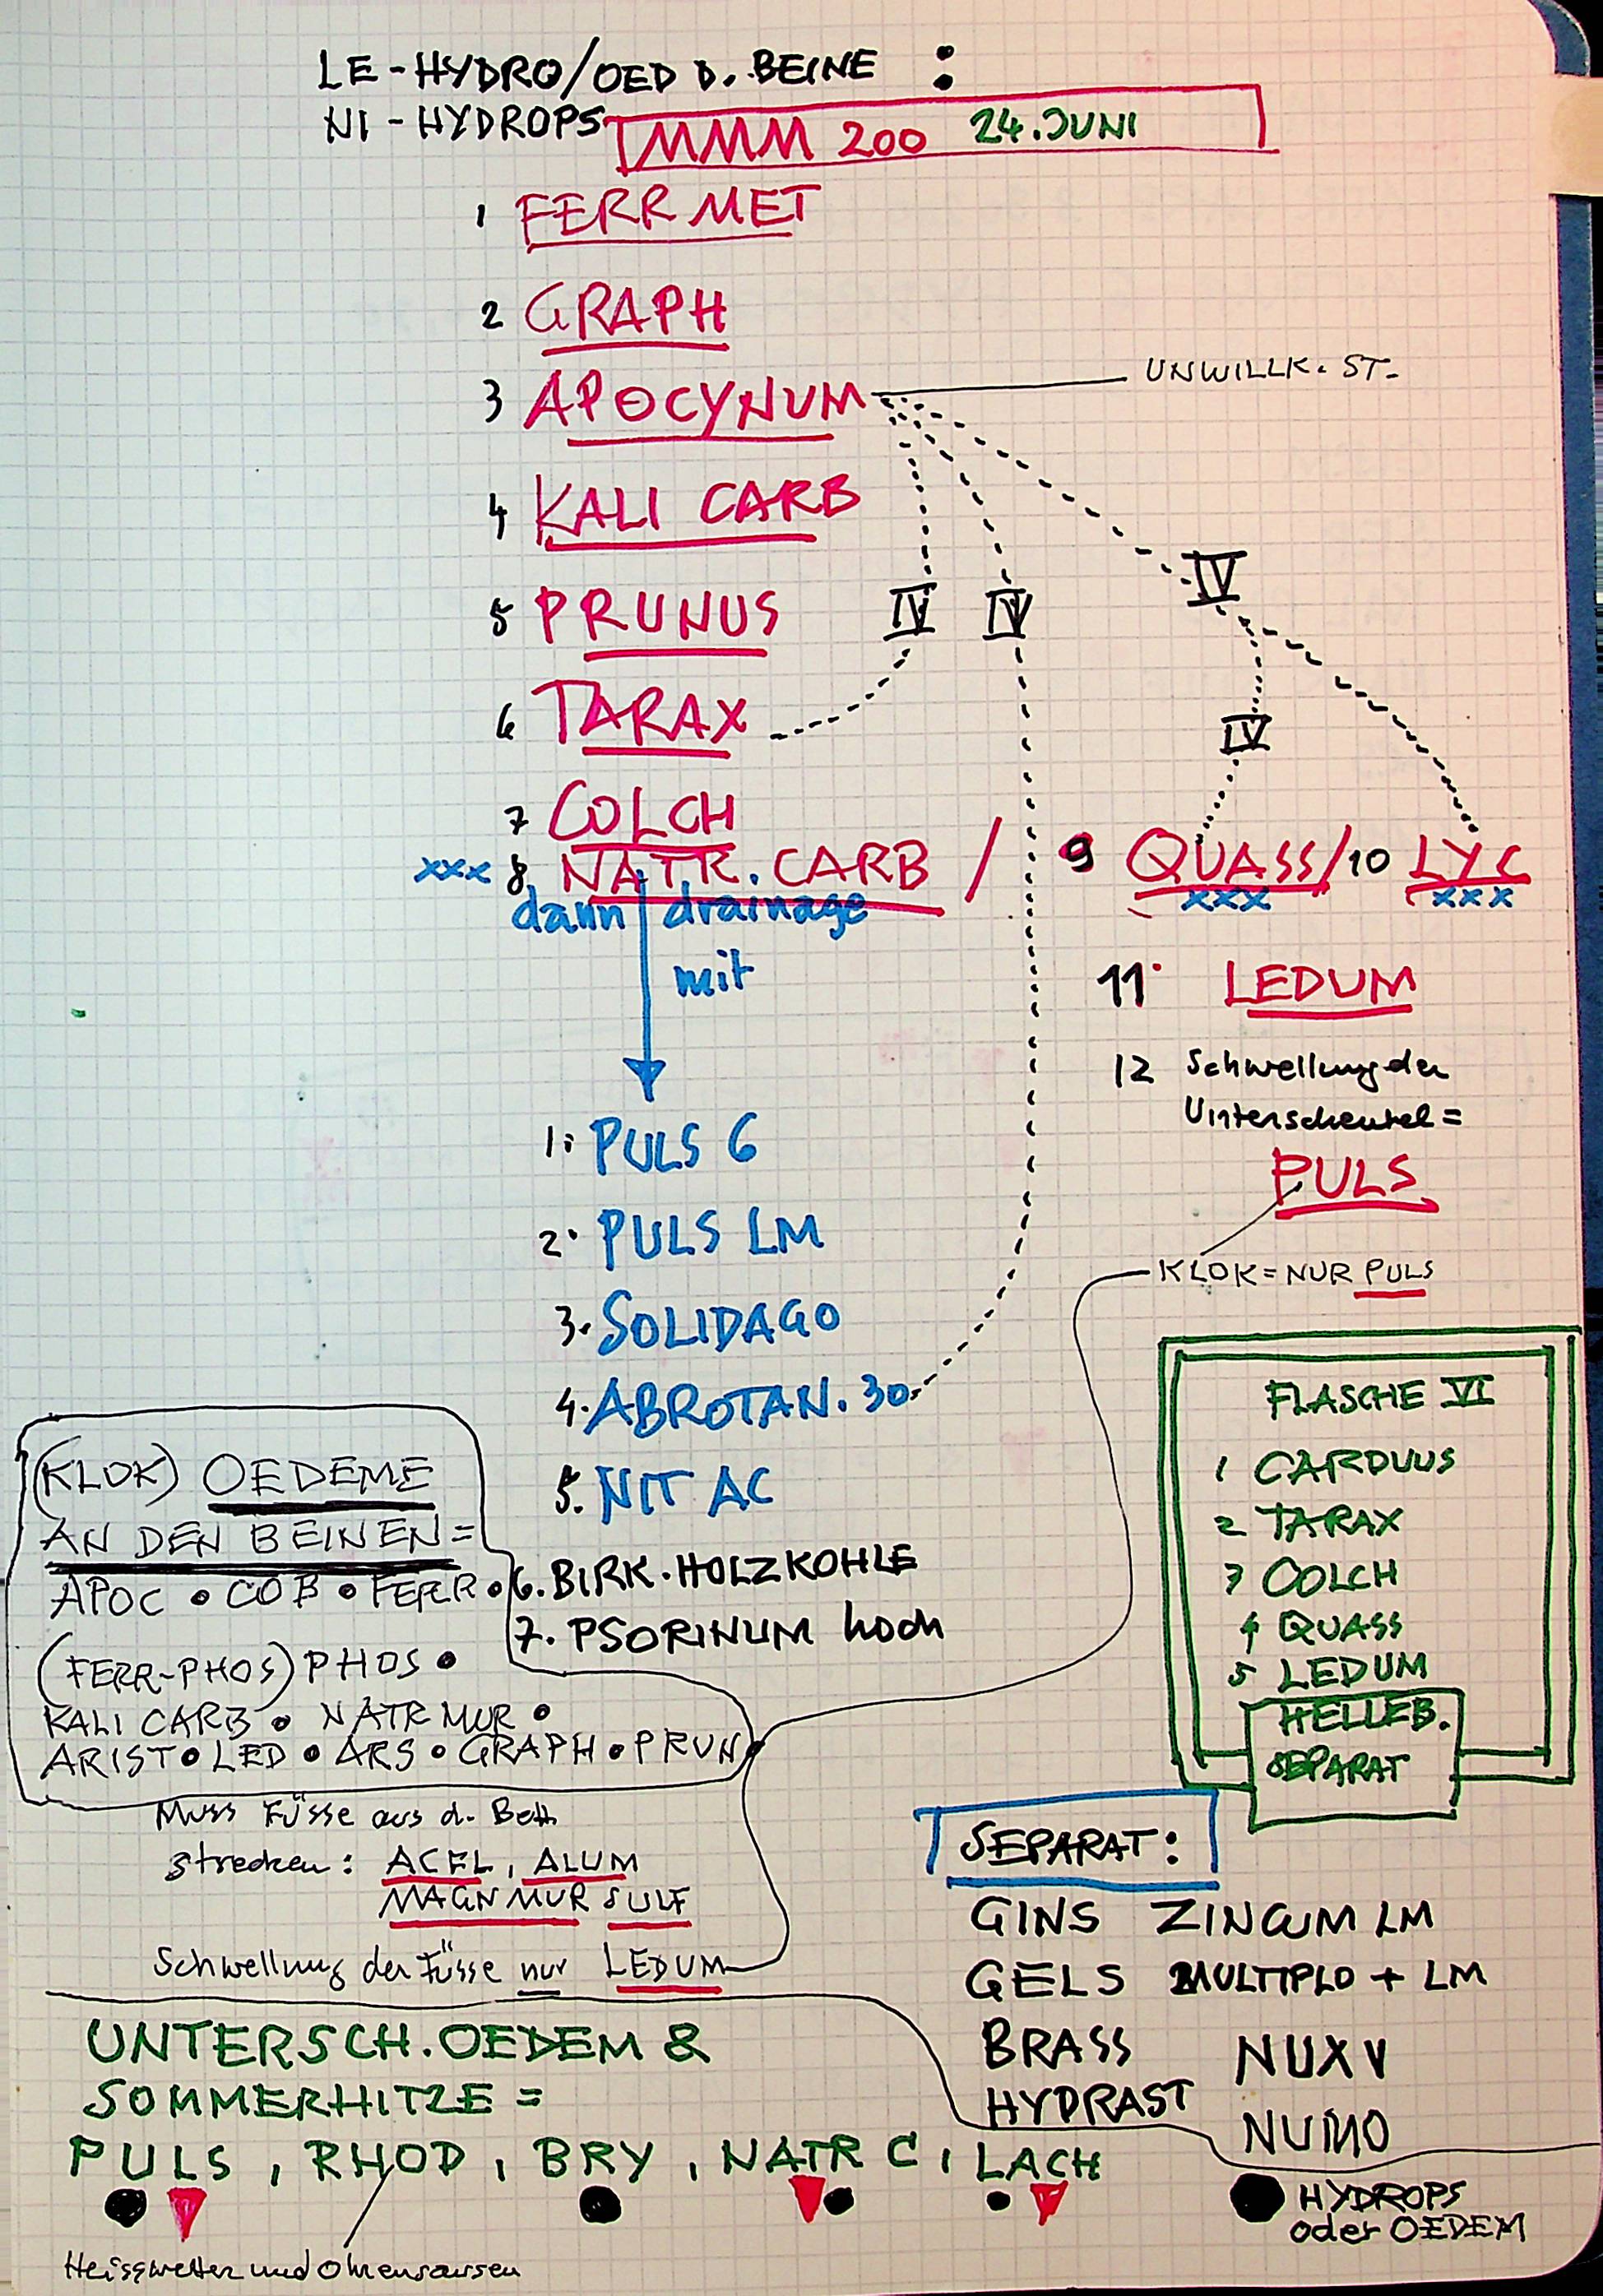 LE-HYDRO/OED D. BEINE :
NI-HYDROPS
MMM 200 24. JUNI
1 FERR MET
2 GRAPH
3 APOCYNUM
UNWILLK. ST.
4 KALI CARB
IV
5 PRUNUS
IV IV
6 TARAX
IV
7 COLCH
xxx 8 NATR. CARB / 9 QUASS/10 LYC
xxx xxx
dann drainage
mit
11. LEDUM
12 Schwellung der
Unterschenkel =
PULS
KLOK = NUR PULS
1. PULS 6
2. PULS LM
3. SOLIDAGO
4. ABROTAN. 30
5. NIT AC
6. BIRK. HOLZKOHLE
7. PSORINUM hoch
FLASCHE VI
1 CARDUUS
2 TARAX
3 COLCH
4 QUASS
5 LEDUM
HELLEB.
SEPARAT
(KLOK) OEDEME
AN DEN BEINEN =
APOC • COB • FERR •
(FERR-PHOS) PHOS •
KALI CARB • NATR MUR •
ARIST • LED • ARS • GRAPH • PRUN
Muss Füsse aus d. Bett
strecken: ACFL, ALUM
MAGN MUR SULF
Schwellung der Füsse nur LEDUM
SEPARAT:
GINS ZINCUM LM
GELS MULTIPLO + LM
BRASS NUX V
HYDRAST
NUMO
UNTERSCH. OEDEM &
SOMMERHITZE =
PULS, RHOD, BRY, NATR C, LACH
HYDROPS
oder OEDEM
Heisswetter und Ohrensausen